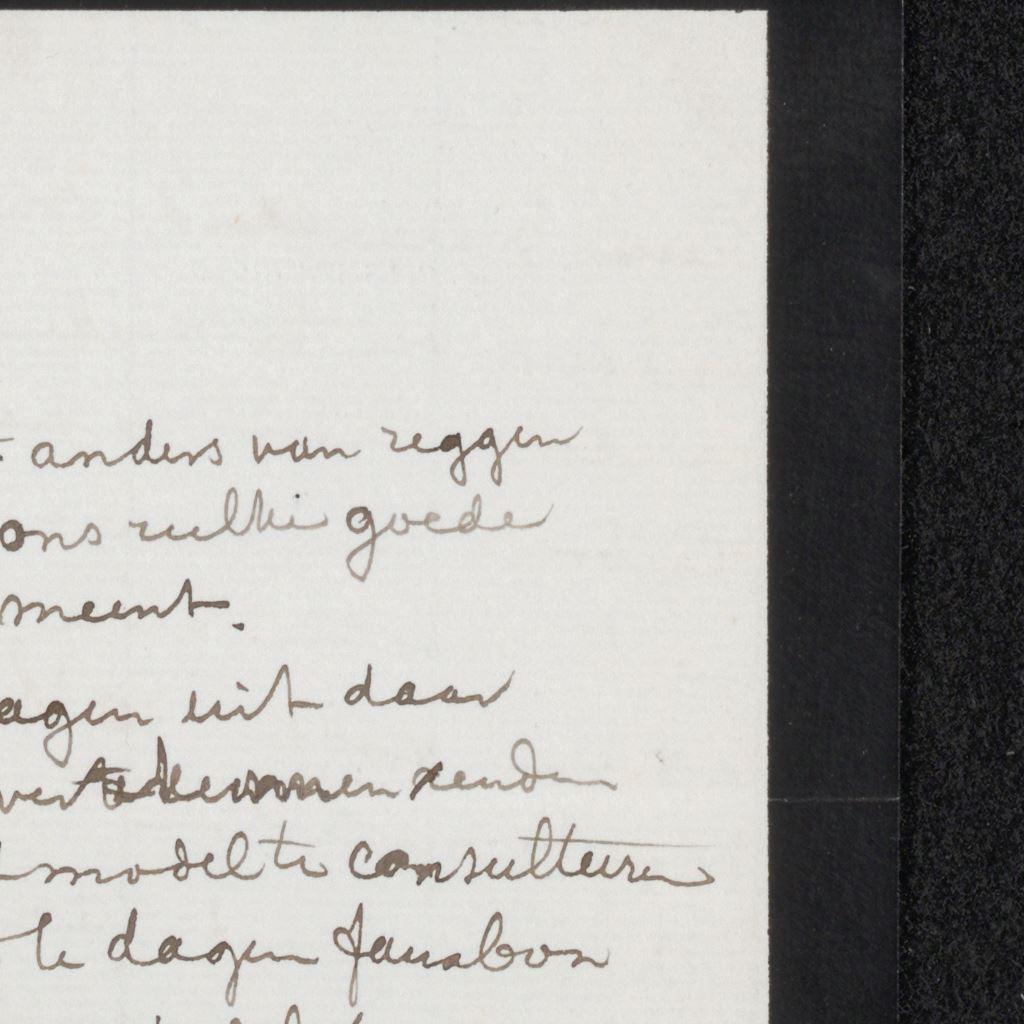 anders van zeggen
ons zulke goede
meent.
agen uit daar
zenden
model te consulteren
te dagen